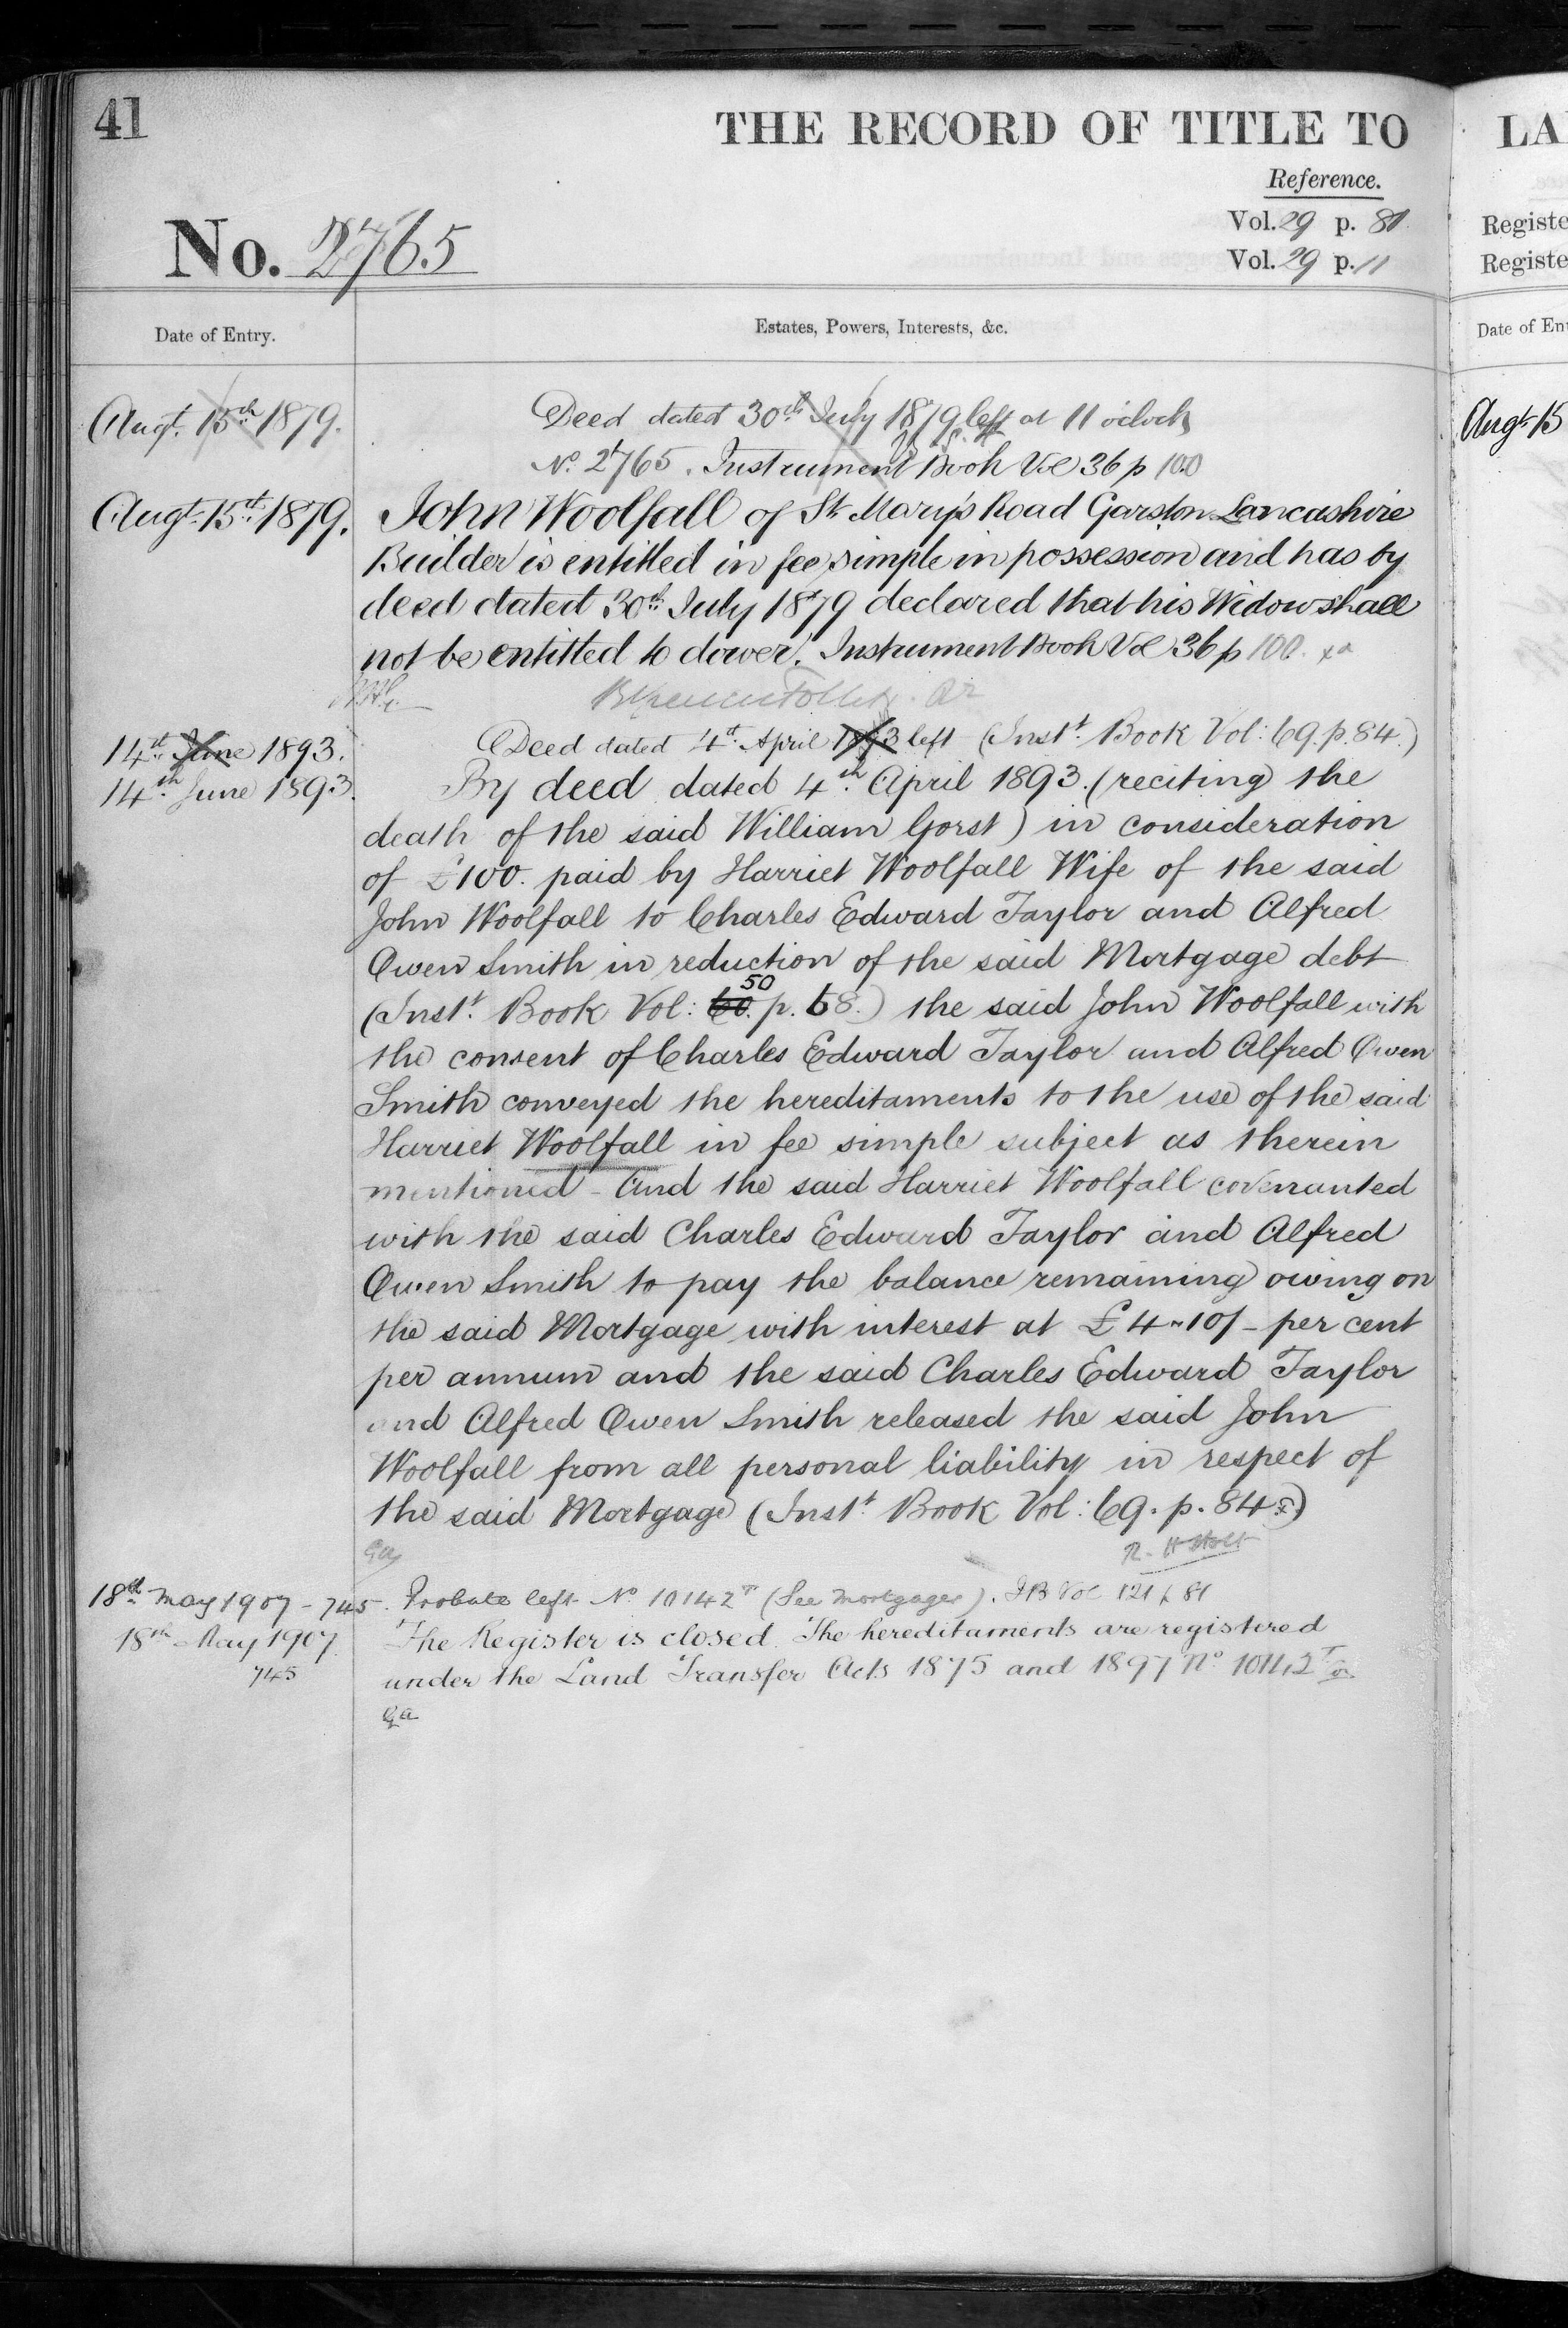 41
THE RECORD OF TITLE TO
LA
Reference.
Vol. 29 p. 80
Vol. 29 p. 11
Registe
Registe
No. 2765
Date of Entry.
Estates, Powers, Interests, &c.
Date of En
Augt. 15th 1879.
Deed dated 30th July 1879 left at 11 oclock
No. 2765. Instrument Book Vol 36 p 100
Augt 15
Augt. 15th 1879.
John Woolfall of St. Mary's Road Garston Lancashire
Builder is entitled in fee simple in possession and has by
deed dated 30th July 1879 declared that his Widow shall
not be entitled to dower. Instrument Book Vol 36 p 100.
14th June 1893.
Deed dated 4th April 1893 left (Inst. Book Vol: 69. p. 84.)
14th June 1893.
By deed dated 4th April 1893. (reciting the
death of the said William Gorst) in consideration
of £100. paid by Harriet Woolfall Wife of the said
John Woolfall to Charles Edward Taylor and Alfred
Owen Smith in reduction of the said Mortgage debt
50
(Inst. Book Vol: 60. p. 58.) the said John Woolfall with
the consent of Charles Edward Taylor and Alfred Owen
Smith conveyed the hereditaments to the use of the said
Harriet Woolfall in fee simple subject as therein
mentioned - And the said Harriet Woolfall covenanted
with the said Charles Edward Taylor and Alfred
Owen Smith to pay the balance remaining owing on
the said Mortgage with interest at £4-10/- per cent
per annum and the said Charles Edward Taylor
and Alfred Owen Smith released the said John
Woolfall from all personal liability in respect of
the said Mortgage (Inst. Book Vol: 69. p. 84.)
R. H. Holt
18th May 1907 - 745.
Probate left No 10142T (See Mortgages). IB Vol 121 p 81
18th May 1907.
745
The Register is closed. The hereditaments are registered
under the Land Transfer Acts 1875 and 1897 No 10142T
Ga